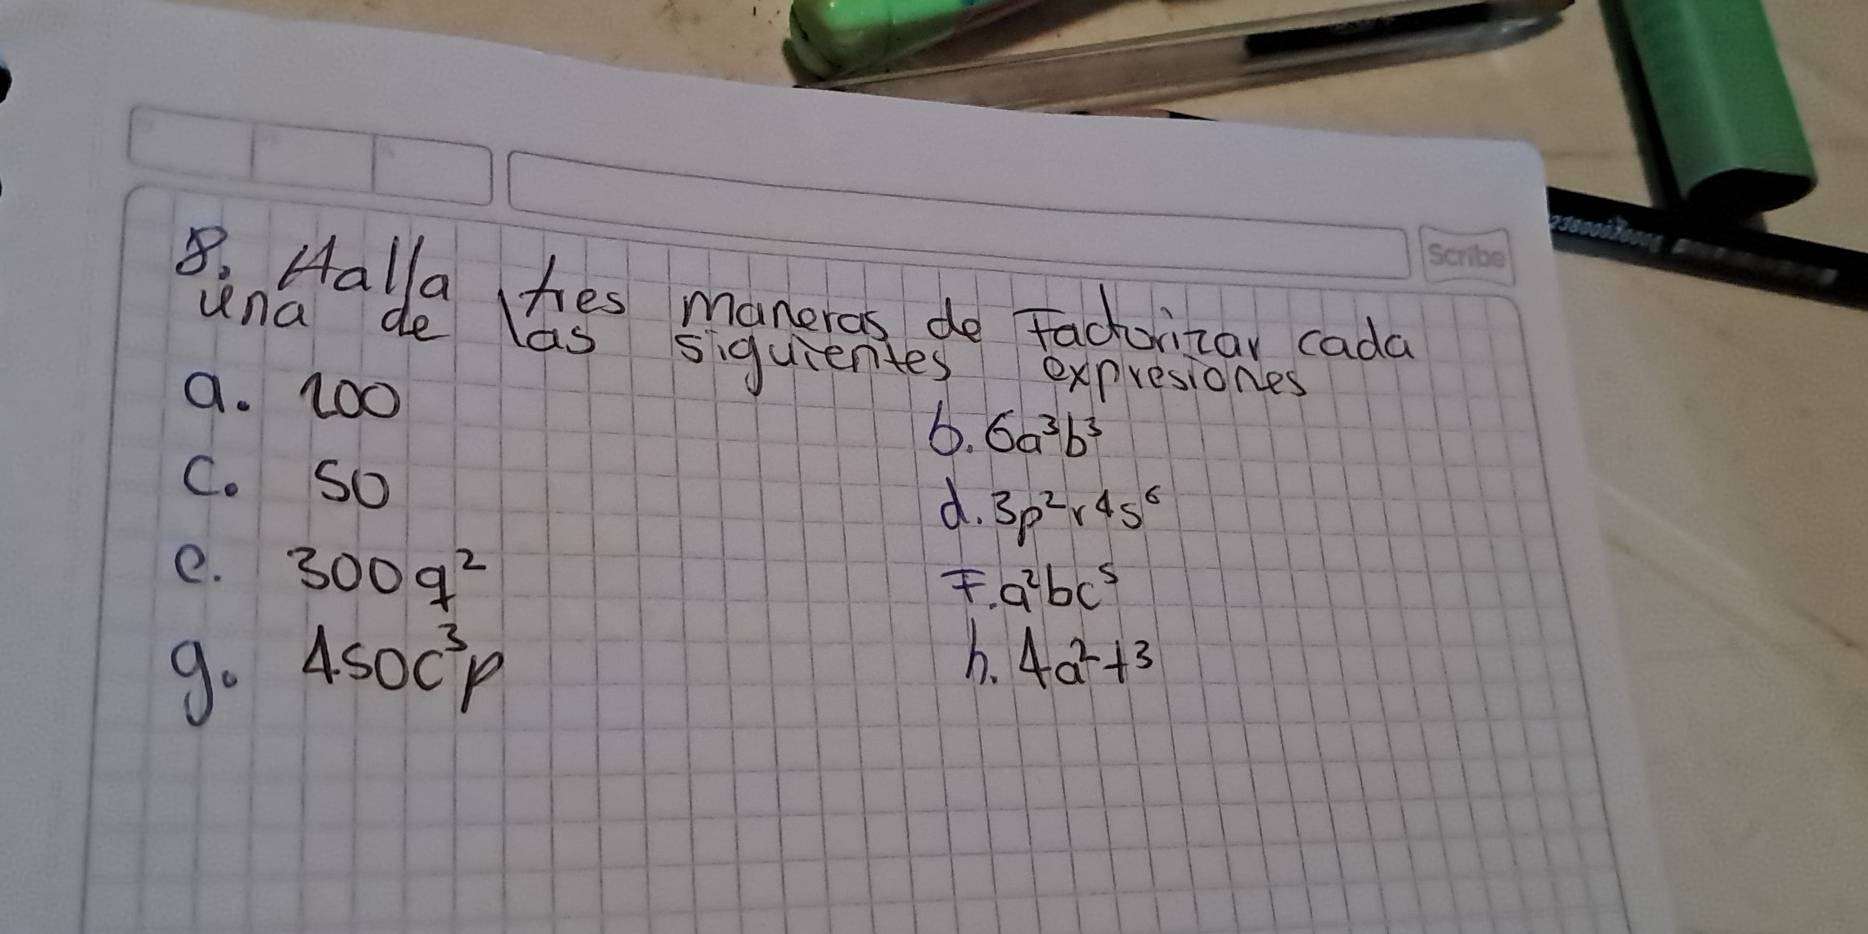 Scribe
8. Halla tres maneras de Factorizar cada
una de las siguientes expresiones
a. 100
b. 6a³b³
c. 50
d. 3p²r4s⁶
e. 300q²
F. a²bc⁵
g. 450c³p
h. 4a²+3